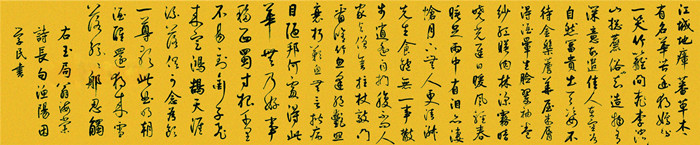 江城地瘴蕃草木只
有名華苦幽獨嫣然
一笑竹籬間桃李漫
山總麤俗也知造物有
深意故遣佳人在空谷
自然富貴出天姿不
待金盤薦華屋朱脣
得酒暈生臉翠袖卷
紗紅映肉林深霧暗
曉光遲日暖風輕春
睡足雨中有泪亦淒
愴月下無人更清淑
先生食飽無一事散
步逍遥自捫腹不問人
家與僧舍拄杖敲門
看脩竹忽逢絶艷照
衰朽嘆息無言揩病
目陋邦何處得此
華無乃好事
移西蜀寸根千里
不易致銜子飛
來定鴻鵠天涯
流落俱可念爲飲
一尊歌此曲明朝
酒醒還獨來雪
落紛紛那忍觸
右玉局翁海棠
詩長句漁陽困
學民書